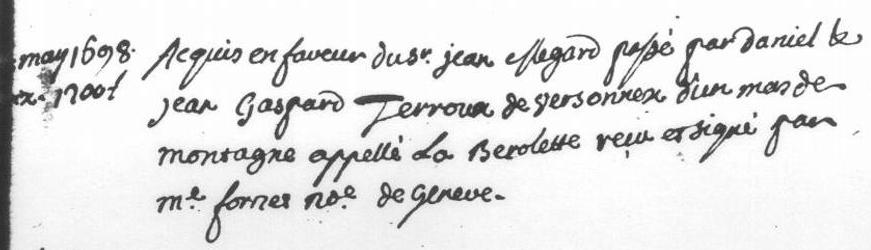 may 1698. Acquis en faveur du Sr. jean Megard passé par daniel &
1700 jean Gaspard Terroux de versonnex d'un mas de
montagne appellé La Berolette reçu et signé par
me. fornes no.e de Geneve.